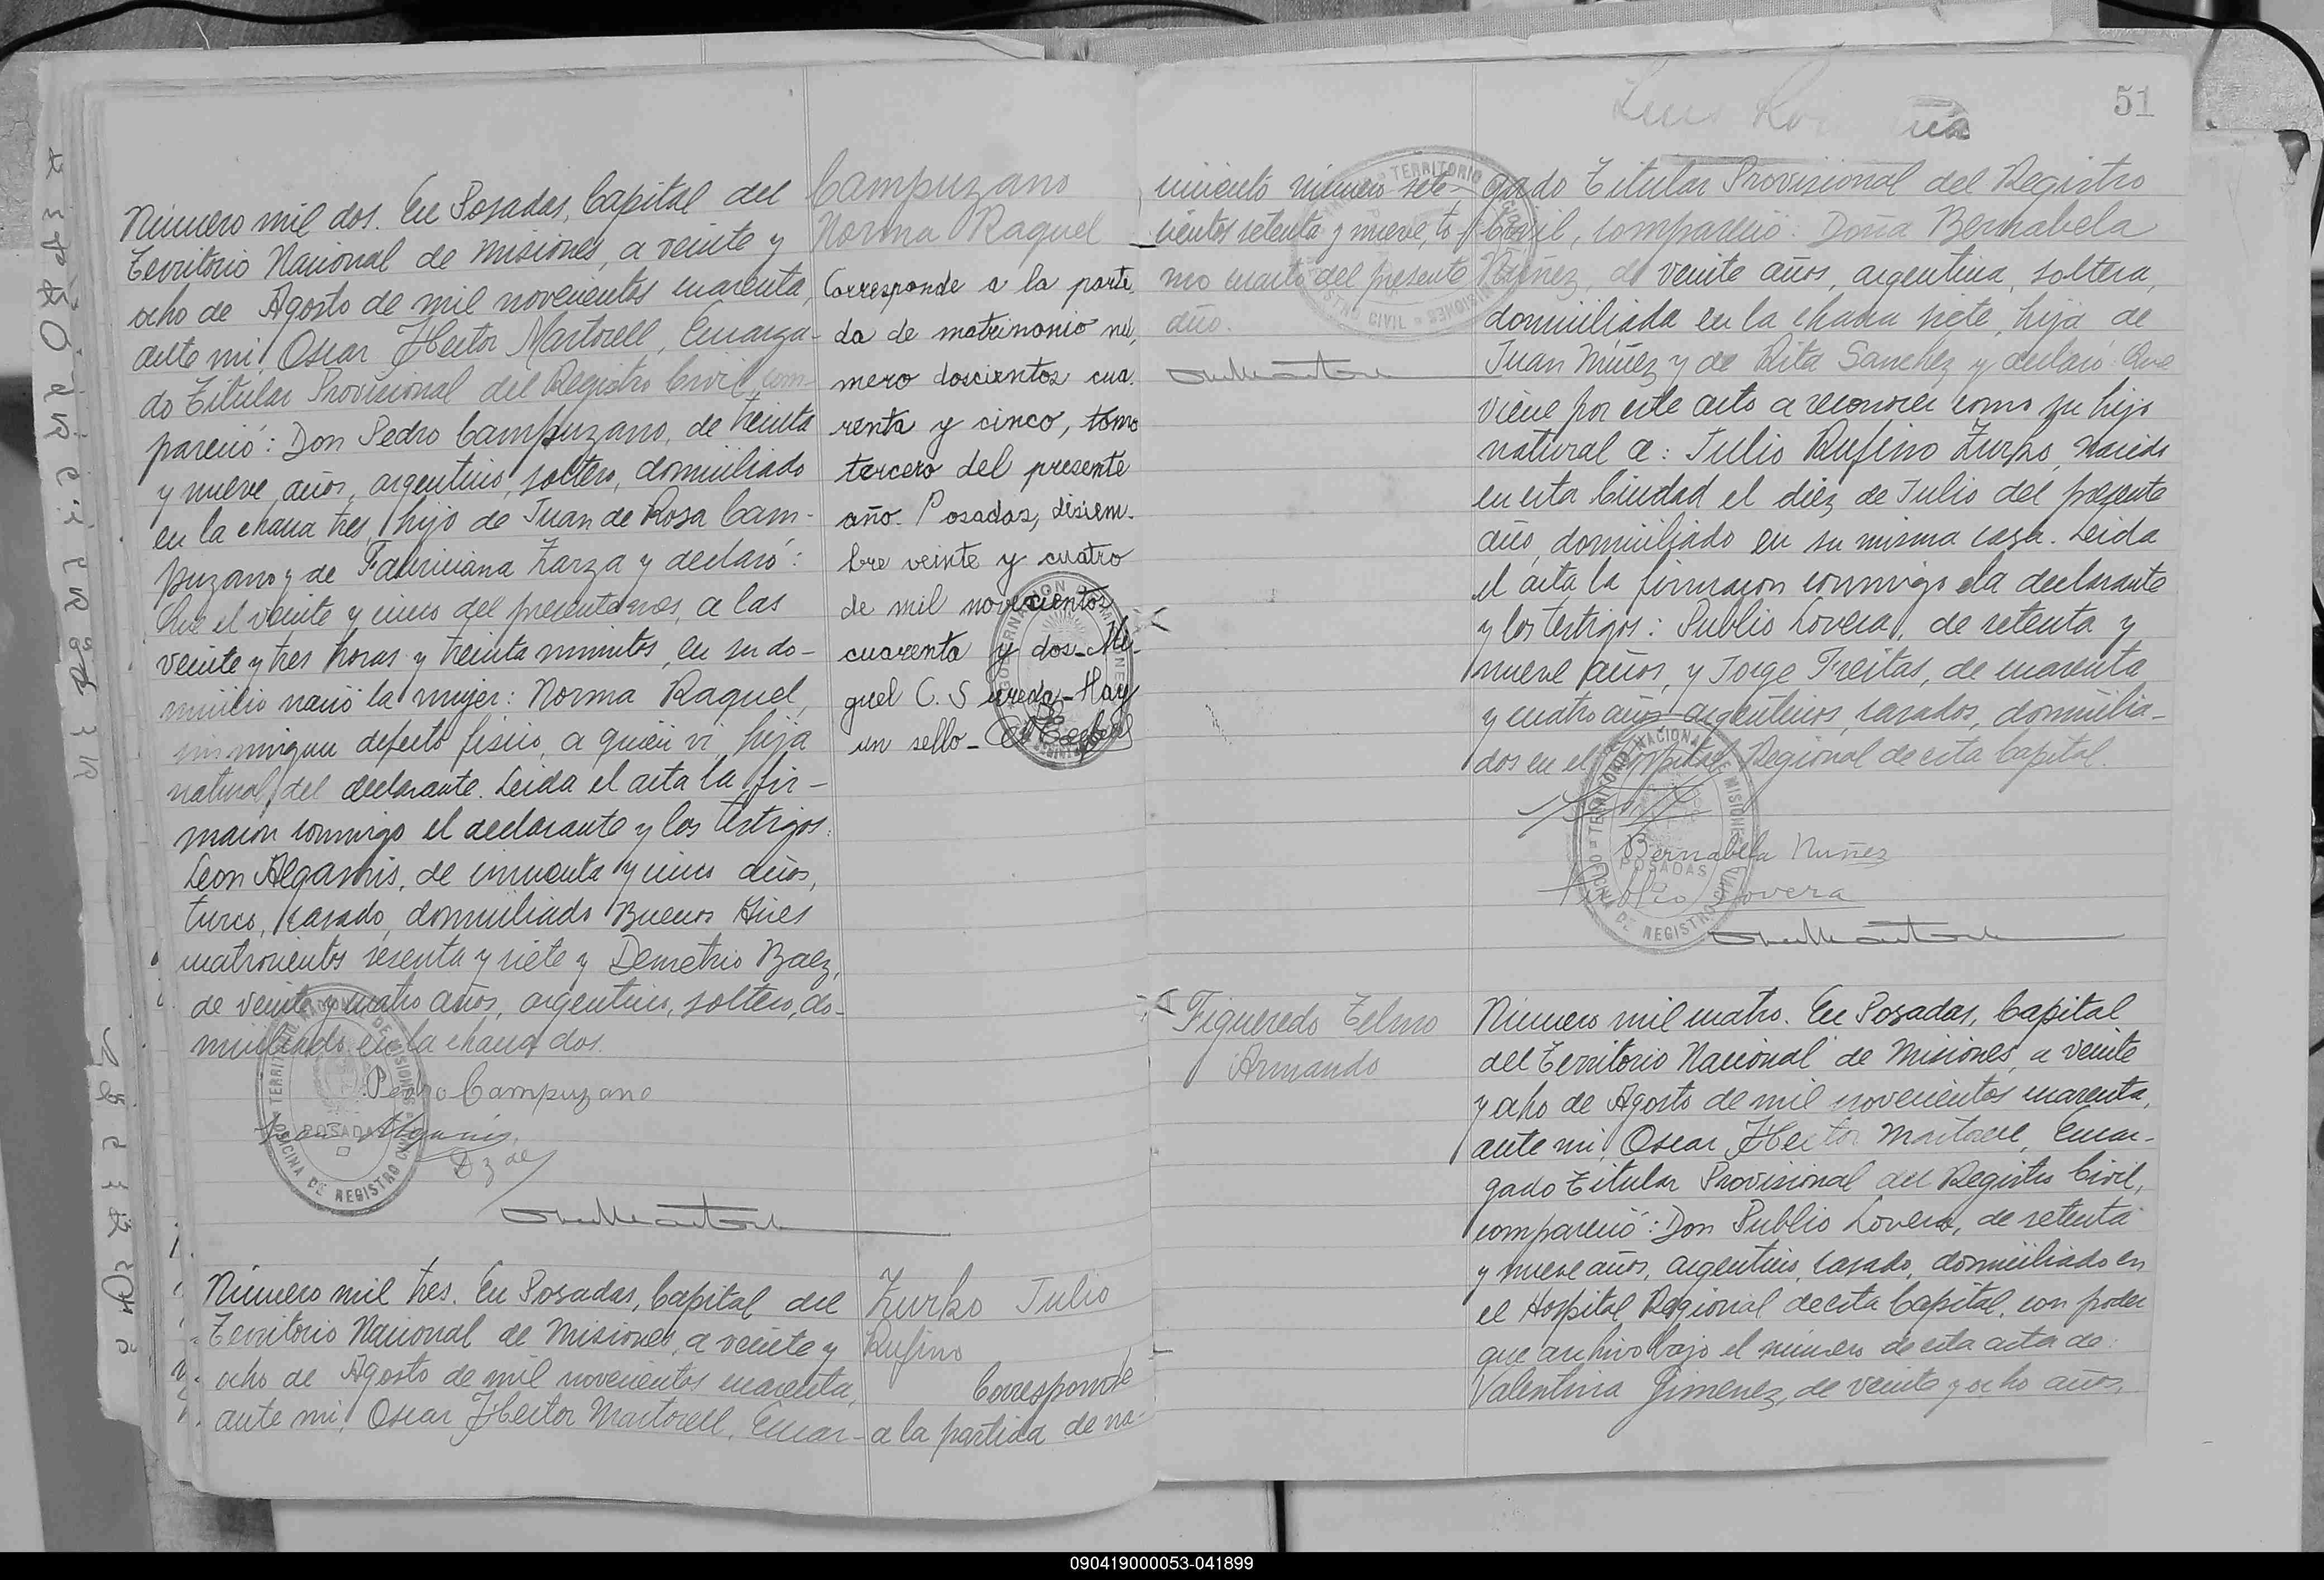 Número mil dos. En Posadas, Capital del
Territorio Nacional de Misiones, a veinte y
ocho de Agosto de mil novecientos cuarenta,
ante mi, Oscar Hector Martorell, Encarga-
do Titular Provisional del Registro Civil, com-
pareció: Don Pedro Campuzano, de treinta
y nueve años, argentino, soltero, domiciliado
en la chacra tres, hijo de Juan de Rosa Cam-
puzano y de Zarza y declaró:
Que el veinte y cinco del presente mes, a las
veinte y tres horas y treinta minutos, en su do-
micilio nació la mujer: Norma Raquel,
sin ningun defecto fisico, a quien vi, hija
natural del declarante. Leida el acta la fir-
maron conmigo el declarante y los testigos:
Leon Algamis, de cincuenta y cinco años,
turco, casado, domiciliado Buenos Aires
cuatrocientos sesenta y siete y Demetrio Baez,
de veinte y cuatro años, argentino, soltero, do-
miciliado en la chacra dos.
Pedro Campuzano
TERRITORIO NACIONAL DE MISIONES
POSADAS
OFICINA DE REGISTRO CIVIL
Campuzano
Norma Raquel
Corresponde a la parti-
da de matrimonio nú-
mero doscientos cua-
renta y cinco, tomo
tercero del presente
año. Posadas, diciem-
bre veinte y cuatro
de mil novecientos
cuarenta y dos - Mi-
guel C. Sureda - Hay
un sello -
Número mil tres. En Posadas, Capital del
Territorio Nacional de Misiones, a veinte y
ocho de Agosto de mil novecientos cuarenta,
ante mi, Oscar Hector Martorell, Encar-
Zurko Julio
Rufino
Corresponde
a la partida de na-
51
cimiento número sete-
cientos setenta y nueve, to-
mo cuarto del presente
año.
gado Titular Provisional del Registro
Civil, compareció: Doña Bernabela
Núñez, de veinte años, argentina, soltera,
domiciliada en la chacra siete, hija de
Juan Núñez y de Rita Sanchez y declaró: Que
viene por este acto a reconocer como su hijo
natural a: Julio Rufino Zurko, nacido
en esta Ciudad el diez de Julio del presente
año, domiciliado en su misma casa. Leida
el acta la firmaron conmigo la declarante
y los testigos: Publio Lovera, de setenta y
nueve años, y Jorge Freitas, de cuarenta
y cuatro años, argentinos, casados, domicilia-
dos en el Hospital Regional de esta Capital.
Bernabela Nuñez
Publio Lovera
TERRITORIO NACIONAL DE MISIONES
POSADAS
OFICINA DE REGISTRO CIVIL
Figueredo Telmo
Armando
Número mil cuatro. En Posadas, Capital
del Territorio Nacional de Misiones, a veinte
y ocho de Agosto de mil novecientos cuarenta,
ante mi, Oscar Hector Martorell, Encar-
gado Titular Provisional del Registro Civil,
compareció: Don Publio Lovera, de setenta
y nueve años, argentino, casado, domiciliado en
el Hospital Regional de esta Capital, con poder
que archivo bajo el número de esta acta de:
Valentina Gimenez, de veinte y ocho años,
090419000053-041899